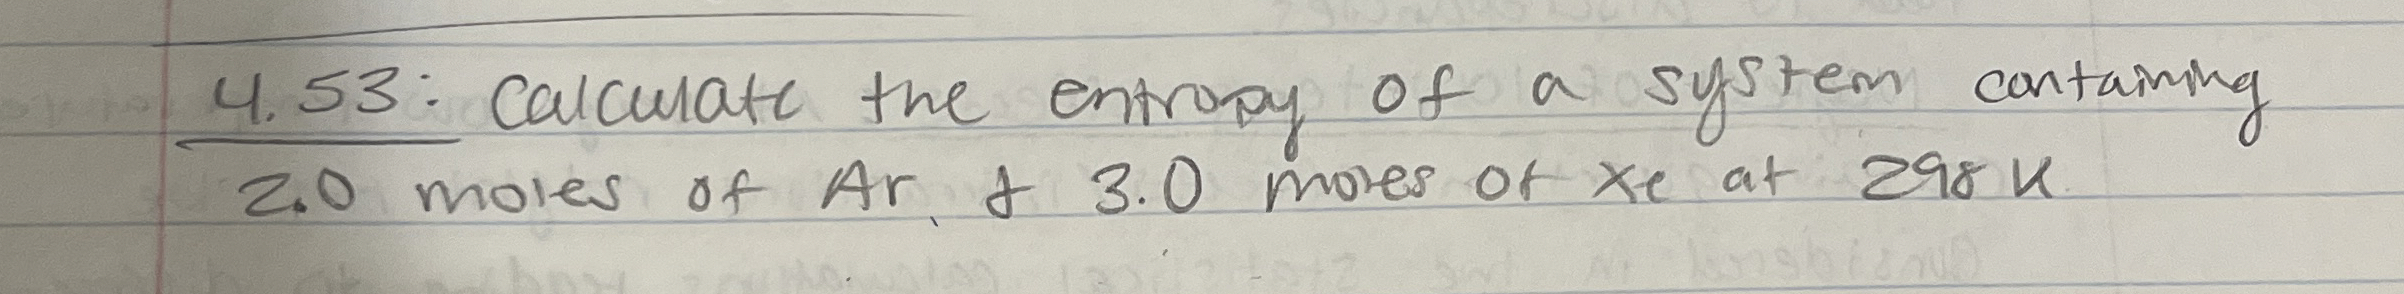 4.53: Calculate the entropy of a system containing
2.0 moles of Ar, & 3.0 moles of Xe at 298 K